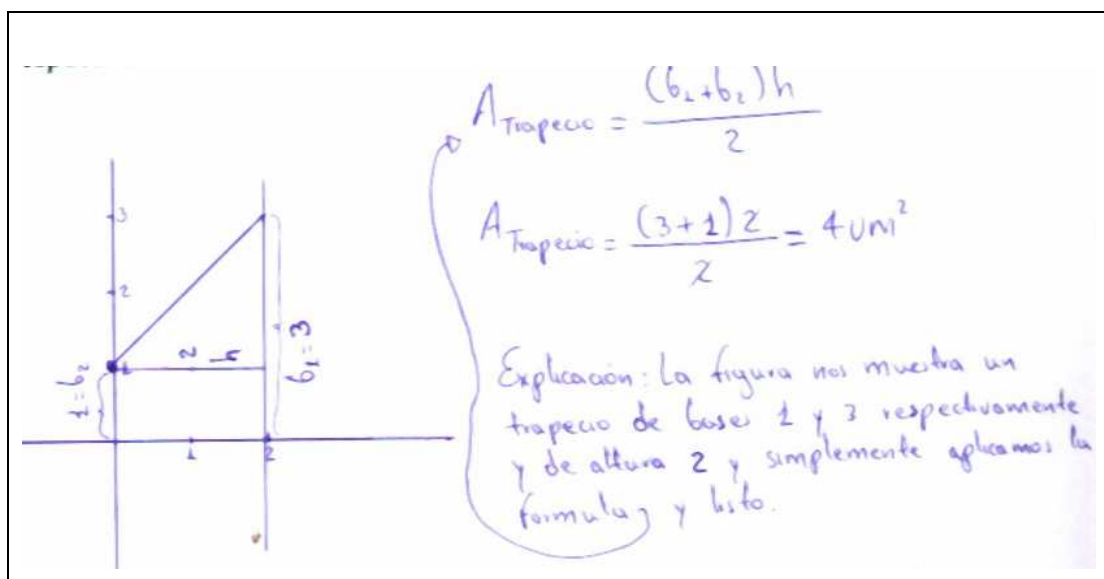 A Trapecio = (b₁+b₂)h / 2
A Trapecio = (3+1)2 / 2 = 4 um²
3
2
1
1 = b₂
2 h
b₁ = 3
1 2
Explicación: La figura nos muestra un
trapecio de bases 1 y 3 respectivamente
y de altura 2 y simplemente aplicamos la
formula y listo.